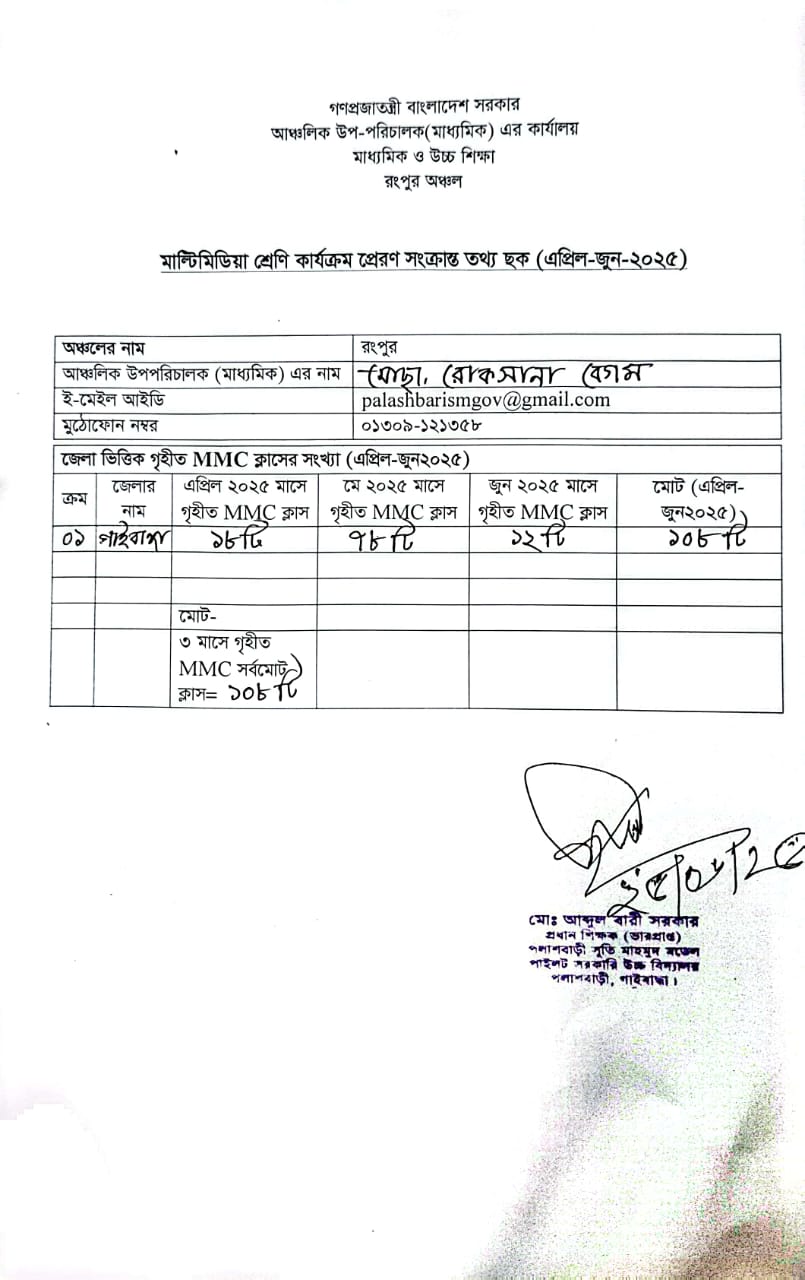 গণপ্রজাতন্ত্রী বাংলাদেশ সরকার
আঞ্চলিক উপ-পরিচালক(মাধ্যমিক) এর কার্যালয়
মাধ্যমিক ও উচ্চ শিক্ষা
রংপুর অঞ্চল
মাল্টিমিডিয়া শ্রেণি কার্যক্রম প্রেরণ সংক্রান্ত তথ্য ছক (এপ্রিল-জুন-২০২৫)
অঞ্চলের নাম রংপুর
আঞ্চলিক উপপরিচালক (মাধ্যমিক) এর নাম মোছা. রোকসানা বেগম
ই-মেইল আইডি palashbarismgov@gmail.com
মুঠোফোন নম্বর ০১৩০৯-১২১৩৫৮
জেলা ভিত্তিক গৃহীত MMC ক্লাসের সংখ্যা (এপ্রিল-জুন২০২৫)
ক্রম জেলার নাম এপ্রিল ২০২৫ মাসে গৃহীত MMC ক্লাস মে ২০২৫ মাসে গৃহীত MMC ক্লাস জুন ২০২৫ মাসে গৃহীত MMC ক্লাস মোট (এপ্রিল-জুন২০২৫)
০১ গাইবান্ধা ১৮টি ৭৮টি ১২টি ১০৮টি
মোট-
৩ মাসে গৃহীত
MMC সর্বমোট
ক্লাস= ১০৮টি
মোঃ আব্দুল বারী সরকার
প্রধান শিক্ষক (ভারপ্রাপ্ত)
পলাশবাড়ী সূতি মাহমুদ মডেল
পাইলট সরকারি উচ্চ বিদ্যালয়
পলাশবাড়ী, গাইবান্ধা।